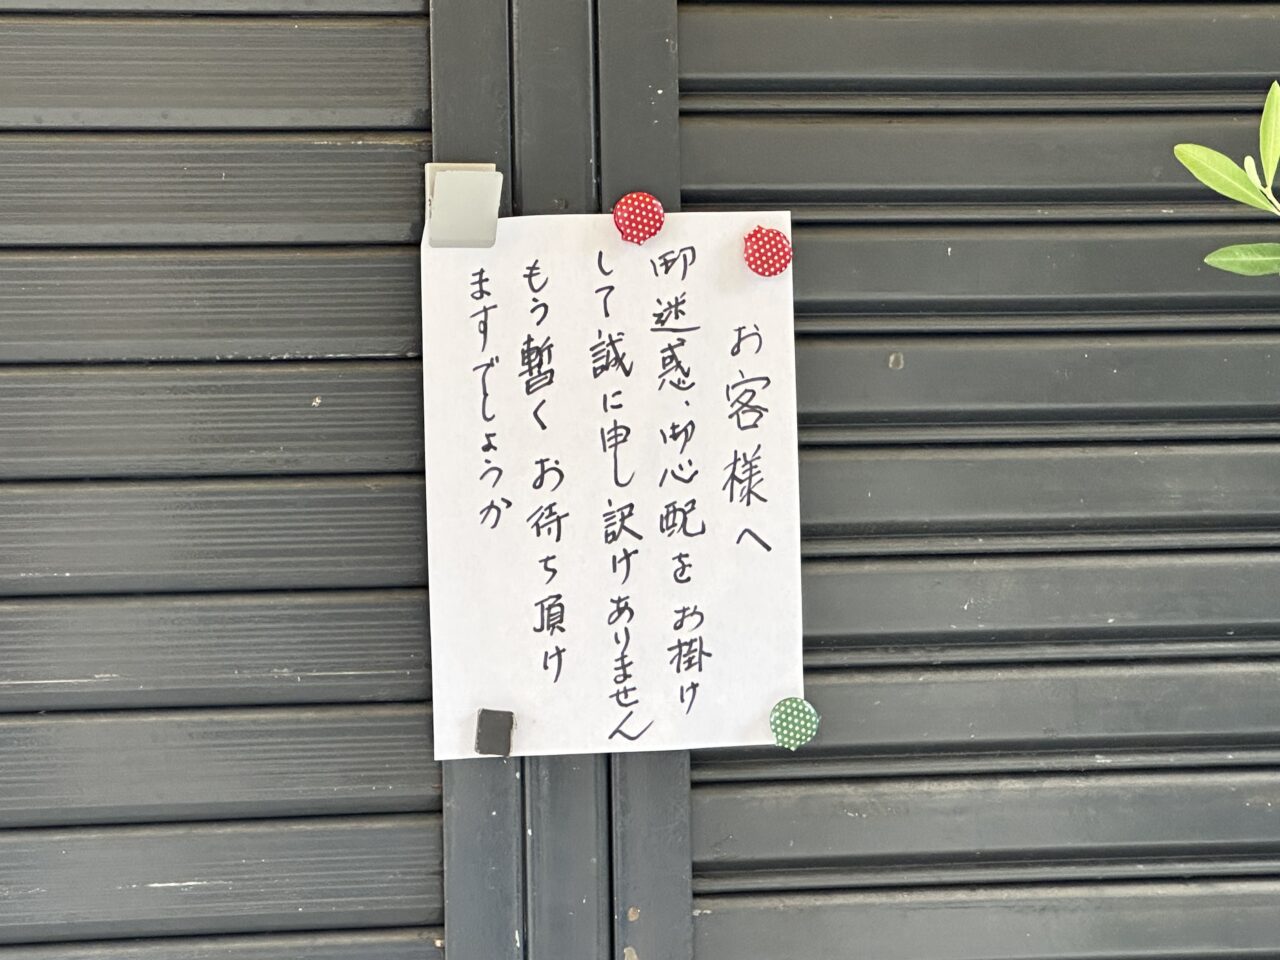 お客様へ
御迷惑、御心配をお掛け
して誠に申し訳けありません
もう暫くお待ち頂け
ますでしょうか